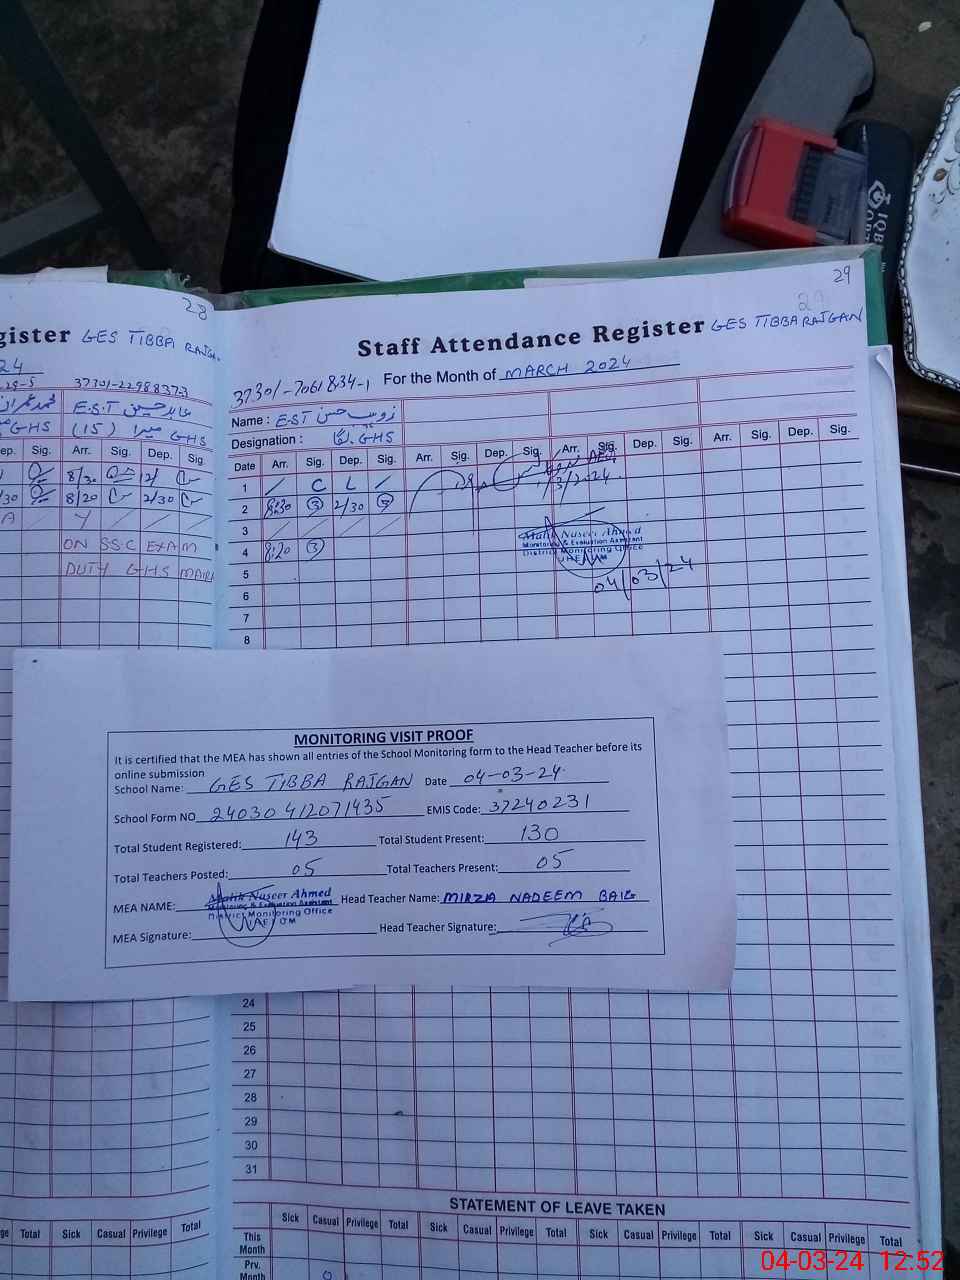 28
gister GES TIBBA RAJGAN
24
29-5 37301-2298837-3
E.S.T عابد حسین
GHS (15) میرا GHS
ep. Sig. Arr. Sig. Dep. Sig.
8/30 12/
/30 8/20 2/30
A
ON SSC EXAM
DUTY GHS MAIRA
29
29
Staff Attendance Register GES TIBBA RAJGAN
37301-7061834-1 For the Month of MARCH 2024
Name : E.S.T زوہیب حسن
Designation : GHS
Date Arr. Sig. Dep. Sig. Arr. Sig. Dep. Sig. Arr. Sig. Dep. Sig. Arr. Sig. Dep. Sig.
1 / C L /
/3/2024.
2 8:30 2/30
3
Malik Naseer Ahmed
Monitoring & Evaluation Assistant
District Monitoring Office
4 8:20
5
04/03/24
6
7
8
MONITORING VISIT PROOF
It is certified that the MEA has shown all entries of the School Monitoring form to the Head Teacher before its
online submission
School Name: GES TIBBA RAJGAN Date 04-03-24
School Form NO 24030412071435 EMIS Code: 37240231
Total Student Registered: 143 Total Student Present: 130
Total Teachers Posted: 05 Total Teachers Present: 05
MEA NAME: Malik Naseer Ahmed Head Teacher Name: MIRZA NADEEM BAIG
Monitoring & Evaluation Assistant
District Monitoring Office
MEA Signature: Head Teacher Signature:
24
25
26
27
28
29
30
31
STATEMENT OF LEAVE TAKEN
ge Total Sick Casual Privilege Total
Sick Casual Privilege Total Sick Casual Privilege Total Sick Casual Privilege Total Sick Casual Privilege Total
This
Month
Prv.
Month
04-03-24 12:52